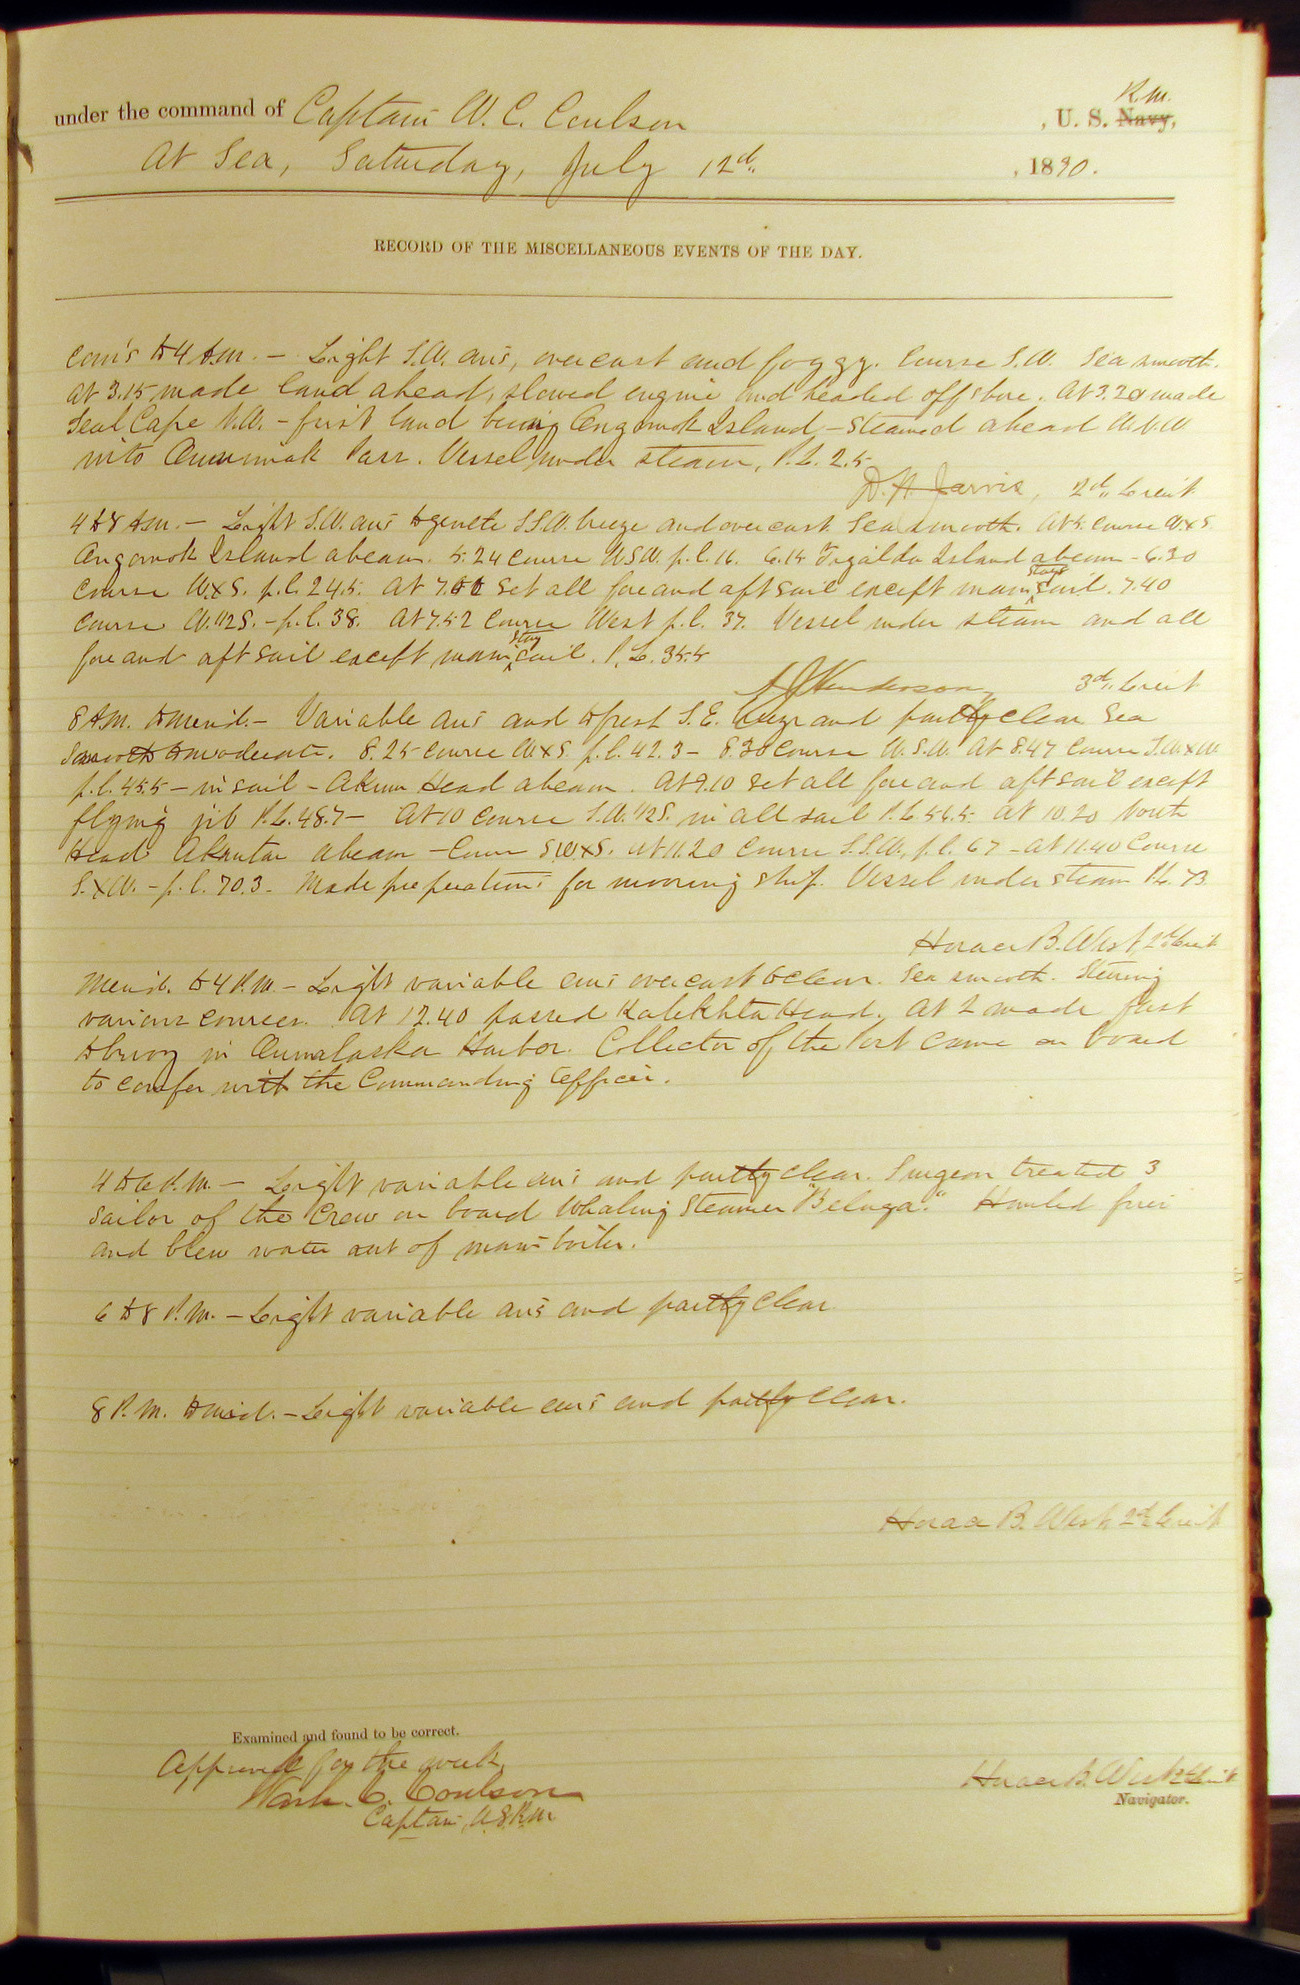 under the command of Captain W. C. Coulson , U. S. Navy, R. M.
At Sea, Saturday, July 12d. , 1890.
RECORD OF THE MISCELLANEOUS EVENTS OF THE DAY.
Com's to 4 A.M. — Light S.W. airs, overcast and foggy. Course S.W. Sea smooth.
At 3.15 made land ahead, slowed engine and headed off shore. At 3.20 made
Seal Cape N.W. - first land being Ongomok Island - Steamed ahead
into Ounimak Pass. Vessel under steam, P.L. 2.5
D. H. Jarvis, 2d. Lieut
4 to 8 A.M. — Light S.W. airs to gentle S.S.W. breeze and overcast. Sea smooth. At 5. Course W.x S.
Ongomok Island abeam. 5.24 Course W.S.W. p.l. 16. 6.15 Tigalda Island abeam - 6.30
Course W.x S. p.l. 24.5. At 7.00 set all fore and aft sail except main stay sail. 7.40
Course W. 1/2 S. - p.l. 38. At 7.52 Course West p.l. 37. Vessel under steam and all
fore and aft sail except main stay sail. P.L. 38.5
A J Henderson, 3d. Lieut
8 A.M. to merid. — Variable airs and to fresh S.E. breeze and partly clear Sea
smooth to moderate. 8.25 Course W.x S. p.l. 42.3 - 8.30 Course W.S.W. At 8.47 Course S.W.x W.
p.l. 45.5 - in sail - Akun Head abeam. At 9.10 set all fore and aft sail except
flying jib P.L. 48.7 - At 10 Course S.W. 1/2 S. in all sail P.L. 56.5. At 10.20 North
Head Akutan abeam - Course S.W.x S. At 11.20 Course S.S.W., p.l. 67 - At 11.40 Course
S.x W. - p.l. 70.3 - Made preparations for mooring ship. Vessel under steam P.L. 73
Horace B. West, 2d Lieut
Merid. to 4 P.M. — Light variable airs overcast to clear. Sea smooth. Steering
various courses. At 12.40 passed Kalekhta Head. At 2 made fast
to buoy in Ounalaska Harbor. Collector of the Port came on board
to confer with the Commanding Officer.
4 to 6 P.M. — Light variable airs and partly clear. Surgeon treated 3
sailor of the Crew on board Whaling Steamer "Beluga." Hauled fires
and blew water out of main boiler.
6 to 8 P.M. — Light variable airs and partly clear
8 P.M. to mid. — Light variable airs and partly clear.
Horace B. West 2d Lieut
Examined and found to be correct.
Approved for the week
Wash. C. Coulson
Captain, U.S.R.M.
Horace B. West 2d Lieut
Navigator.